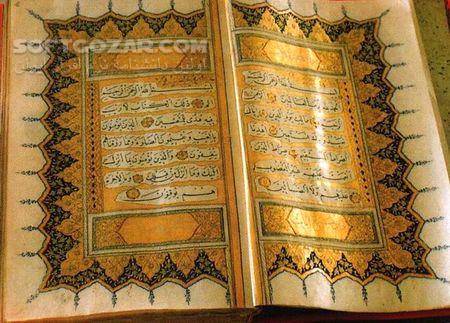 SOFTGOZAR.COM
بسم الله الرحمن الرحيم
الحمد لله رب العالمين
الرحمن الرحيم مالك يوم
الدين اياك نعبد واياك
نستعين اهدنا
الصراط المستقيم صراط الذين
انعمت عليهم غير المغضوب
عليهم ولا الضالين
بسم الله الرحمن الرحيم
الم ذلك الكتاب لا ريب
فيه هدى للمتقين الذين يؤمنون
بالغيب ويقيمون الصلوة ومما رزقناهم
ينفقون والذين يؤمنون بما انزل
اليك وما انزل من قبلك وبالاخرة
هم يوقنون